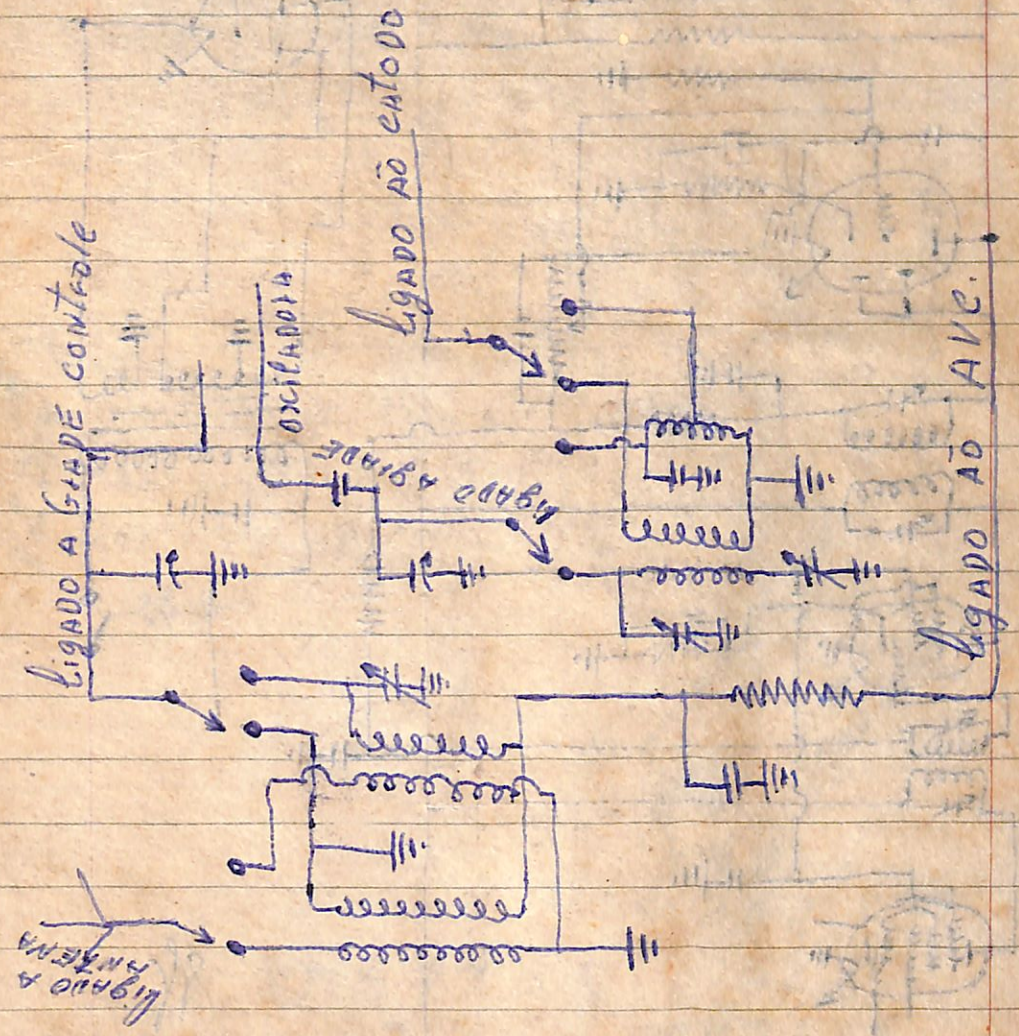 Ligado a Grade controle
oxciladora
Ligado ão catodo
Ligado a grade
Ligado ão AVC.
Ligado a
antena